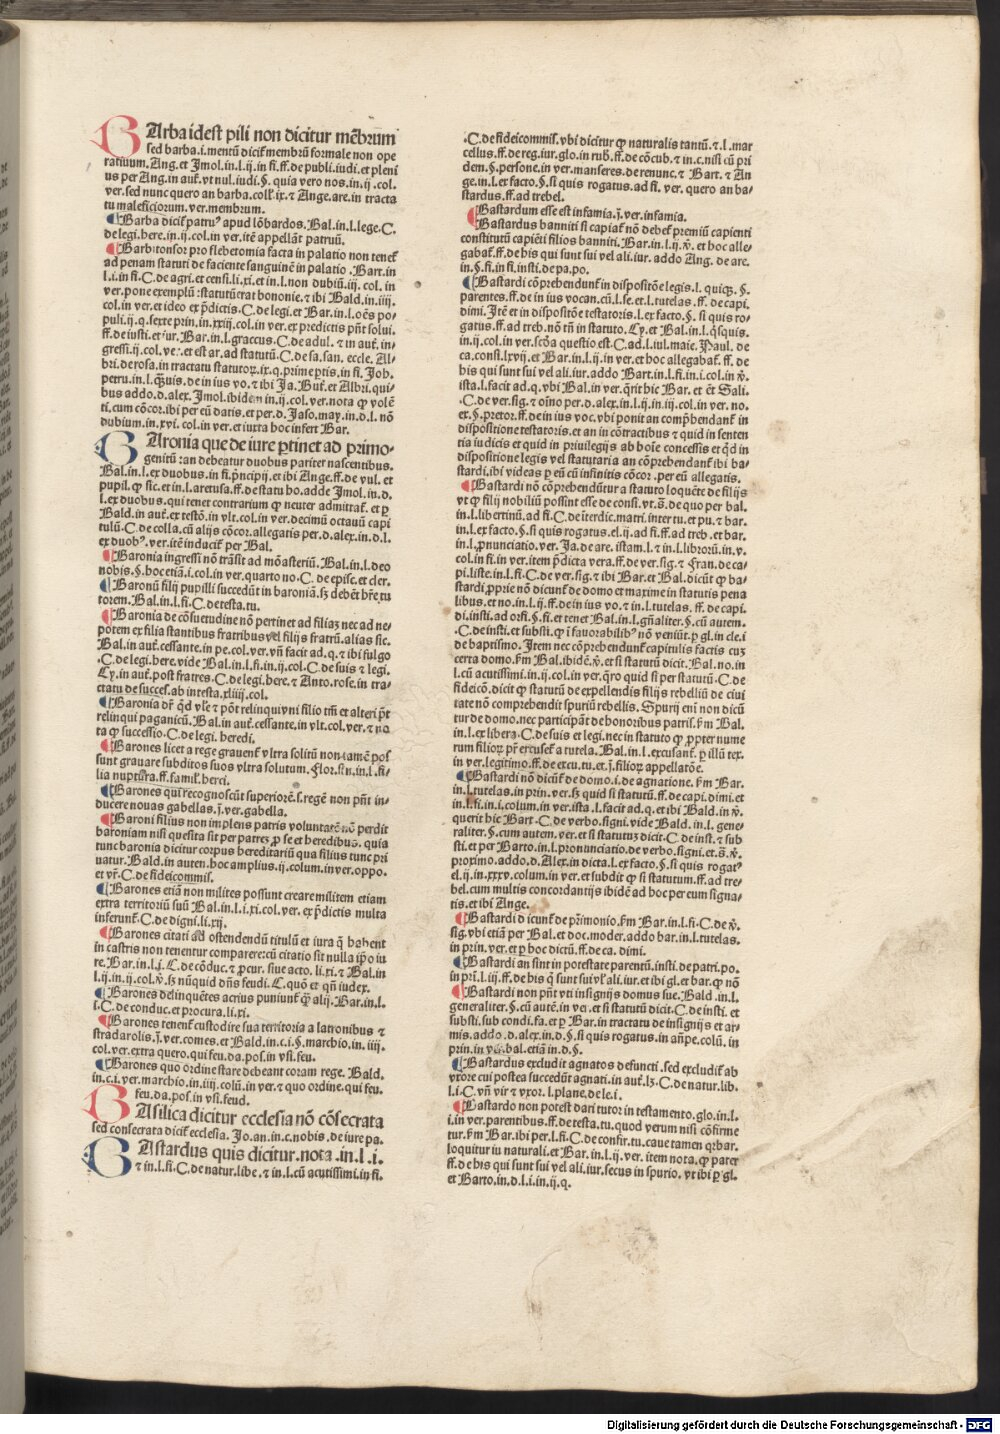 BArba idest pili non dicitur mēbrum
sed barba.i.mentū dicit᷑ membrū formale non ope
ratiuum.Ang.et Imol.in.l.ij.in fi.ff.de publi.iudi.et pleni
us per Ang.in aut̄.vt nul.iudi.§. quia vero nos.in.ij.col.
ver.sed nunc quero an barba.coll᷑.ix.⁊ Ange.are.in tracta
tu maleficiorum.ver.membrum.
¶Barba dicit᷑ patruꝰ apud lōbardos.Bal.in.l.lege.C.
de legi.here.in.ij.col.in ver.itē appellāt patruū.
¶Barbitonsor pro flebotomia facta in palatio non tenet᷑
ad penam statuti de faciente sanguinē in palatio.Bart.in
l.i.in fi.C.de agri.et censi.li.xi.et in.l.non dubiū.iij.col.in
ver.pone exemplū:statutū erat bononie.⁊ ibi Bald.in.iiij.
col.in ver.et ideo ex p̄dictis.C.de legi.et Bar.in.l.oēs po-
puli.ij.q.sexte prin.in.xxiij.col.in ver.ex predictis pn̄t solui.
ff.de iusti.et iur.Bar.in.l.graccus.C.de adul.⁊ in aut̄.in-
gressi.ij.col.ver.et est ar.ad statutū.C.de sa.san.eccle.Al-
bri.de rosa.in tractatu statutoꝝ.ix.q.prime ptis.in fi.Joh.
petru.in.l.q̄uis.de in ius vo.⁊ ibi Ja.But̄.et Albri.qui-
bus addo.d.alex.Imol.ibidem in.ij.col.ver.nota ꝙ volē
ti.cum cōcor.ibi per eū datis.et per.d.Jaso.may.in.d.l.nō
dubium.in.xvi.col.in ver.et iuxta hoc infert Bar.
BAronia que de iure ptinet ad primo-
genitū:an debeatur duobus pariter nascentibus.
Bal.in.l.ex duobus.in fi.p̄ncipij.et ibi Ange.ff.de vul.et
pupil.ꝙ sic.et in.l.aretusa.ff.de statu ho.adde Imol.in.d.
l.ex duobus.qui tenet contrarium ꝙ neuter admittat᷑.et ꝑ
Bald.in aut̄.ex testō.in vlt.col.in ver.decimū octauū capi
tulū.C.de colla.cū alijs cōcor.allegatis per.d.alex.in.d.l.
ex duobꝰ.ver.itē inducit᷑ per Bal.
¶Baronia ingressi nō trāsit ad mōasteriū.Bal.in.l.deo
nobis.§.hoc etiā.i.col.in ver.quarto no.C.de episc.et cler.
¶Baronū filij pupilli succedūt in baroniā.sꝫ debēt hr̄e tu
torem.Bal.in.l.fi.C.de testa.tu.
¶Baronia de cōsuetudine nō pertinet ad filiaꝫ nec ad ne-
potem ex filia stantibus fratribus vel filijs fratrū.alias sic.
Bal.in aut̄.cessante.in pe.col.ver.vn̄ facit ad.q.⁊ ibi fulgo
.C.de legi.here.vide Bal.in.l.fi.in.ij.col.C.de suis ⁊ legi.
Cy.in aut̄.post fratres.C.de legi.here.⁊ Anto.rose.in tra-
ctatu de succes.ab intesta.xliiij.col.
¶Baronia dr̄ qd vl̄e ⁊ pōt relinqui vni filio tm̄ et alteri pōt
relinqui paganicū.Bal.in aut̄.cessante.in vlt.col.ver.⁊ no
ta ꝙ successio.C.de legi.heredi.
¶Barones licet a rege grauent᷑ vltra solitū non tamē pos
sunt grauare subditos suos vltra solutum.Flor.sin.in.l.fi-
lia nuptura.ff.famil᷑.herci.
¶Barones qui recognoscūt superiorē.s.regē non pn̄t in-
ducere nouas gabellas.j̄.ver.gabella.
¶Baroni filius non implens patris voluntatē nō perdit
baroniam nisi quesita sit per patreꝫ ꝓ se et heredibus.quia
tunc baronia dicitur corpus hereditariū qua filius tunc pri
uatur.Bald.in auten.hoc amplius.ij.colum.in ver.oppo.
et vr̄.C.de fideicommis.
¶Barones etiā non milites possunt creare militem etiam
extra territoriū suū Bal.in.l.i.xi.col.ver.ex p̄dictis multa
inferunt᷑.C.de digni.li.xij.
¶Barones citati ad ostendendū titulū et iura q̄ habent
in castris non tenentur comparere:cū citatio sit nulla ip̄o iu
re.Bar.in.l.j.C.de cōduc.et ꝓcur.siue acto.li.xi.⁊ Bal.in
l.ij.in.ij.col.v̄.sꝫ nūquid dn̄s feudi.C.quō et qn̄ iudex.
¶Barones delinquētes acrius puniunt᷑ ꝙ̄ alij.Bar.in.l.
i.C.de conduc.et procura.li.xi.
¶Barones tenent᷑ custodire sua territoria a latronibus ⁊
stradarolis.j̄.ver.comes.et Bald.in.c.i.§.marchio.in.iiij.
col.ver.extra quero.qui feu.da.pos.in vsi.feu.
¶Barones quo ordine stare debeant coram rege.Bald.
in.c.i.ver.marchio.in.iiij.colū.in ver.⁊ quo ordine.qui feu.
feu.da.pos.in vsi.feud.
BAsilica dicitur ecclesia nō cōsecrata
sed consecrata dicit᷑ ecclesia.Jo.an.in.c.nobis.de iure pa.
BAstardus quis dicitur.nota.in.l.i.
⁊ in.l.fi.C.de natur.libe.⁊ in.l.cū acutissimi.in fi.
.C.de fideicommis.vbi dicitur ꝙ naturalis tantū.⁊.l.mar
cellus.ff.de reg.iur.glo.in rub.ff.de cōcub.⁊ in.c.nisi cū pri
dem.§.persone.in ver.manseres.de renunc.⁊ Bart.⁊ An
ge.in.l.ex facto.§.si quis rogatus.ad fi.ver.quero an ba-
stardus.ff.ad trebel.
¶Bastardum esse est infamia.j̄.ver.infamia.
¶Bastardus banniti si capiat᷑ nō debet᷑ premiū capienti
constitutū capiēti filios banniti.Bar.in.l.ij.v̄.et hoc alle-
gabat᷑.ff.de his qui sunt sui vel ali.iur.addo Ang.de are.
in.§.fi.in fi.insti.de pa.po.
¶Bastardi cōprehendunt᷑ in dispositōe legis.l.quicꝗ̄.§.
parentes.ff.de in ius vocan.cū.l.se.et.l.tutelas.ff.de capi.
dimi.Itē et in dispositōe testatoris.l.ex facto.§.si quis ro-
gatus.ff.ad treb.nō tn̄ in statuto.Cy.et Bal.in.l.q̄squis.
in.ij.col.in ver.scōa questio est.C.ad.l.iul.maie.Paul.de
ca.cons.lxvij.et Bar.in.l.ij.in ver.et hoc allegabat᷑.ff.de
his qui sunt sui vel ali.iur.addo Bart.in.l.fi.in.i.col.in v̄.
ista.l.facit ad.q.vbi Bal.in ver.q̄rit hic Bar.et ē̄t Sali.
.C.de ver.sig.⁊ oīno per.d.alex.in.l.ij.in.iij.col.in ver.no.
ex.§.pretor.ff.de in ius voc.vbi ponit an comp̄hendant᷑ in
dispositione testatoris.et an in cōtractibus ⁊ quid in senten
tia iudicis et quid in priuilegijs ab hoīe concessis et qd in
dispositione legis vel statutaria an cōprehendant᷑ ibi ba-
stardi.ibi videas ꝑ eū cū infinitis cōcor.per eū allegatis.
¶Bastardi nō cōprehendūtur a statuto loquēte de filijs
vt ꝙ filij nobiliū possint esse de consi.vt.s̄.de quo per bal.
in.l.libertinū.ad fi.C.de īterdic.matri.inter tu.et pu.⁊ bar.
in.l.ex facto.§.si quis rogatus.el.ij.ad fi.ff.ad treb.et bar.
in.l.ꝓnunciatio.ver.Ja.de are.istam.l.⁊ in.l.librorū.in.v.
col.in fi.in ver.item p̄dicta vera.ff.de ver.sig.⁊ Fran.de ca-
pi.liste.in.l.fi.C.de ver.sig.⁊ ibi Bar.et Bal.dicūt ꝙ ba-
stardi ꝓprie nō dicunt᷑ de domo et maxime in statutis pena
libus.et no.in.l.ij.ff.de in ius vo.⁊ in.l.tutelas.ff.de capi.
di.insti.ad orfi.§.fi.et tenet Bal.in.l.gn̄aliter.§.cū autem.
.C.de insti.et substi.ꝙ ī fauorabilibꝰ nō veniūt.ꝑ gl.in cle.i
de baptismo.Item nec cōprehendunt᷑ capitulis factis cuꝫ
certa domo.ẜm Bal.ibidē.v̄.et si statutū dicit.Bal.no.in
l.cū acutissimi.in.ij.col.in ver.q̄ro quid si per statutū.C.de
fideicō.dicit ꝙ statutū de expellendis filijs rebelliū de ciui
tate nō comprehendit spuriū rebellis.Spurij enī non dicū
tur de domo.nec participāt de honoribus patris.ẜm Bal.
in.l.ex libera.C.de suis et legi.nec in statuto ꝙ ꝓpter nume
rum filioꝝ pr̄ excuset᷑ a tutela.Bal.in.l.excusant᷑.ꝑ illū tex.
in ver.legitimo.ff.de excu.tu.et.j̄.filioꝝ appellatōe.
¶Bastardi nō dicūt᷑ de domo.i.de agnatione.ẜm Bar.
in.l.tutelas.in prin.ver.sꝫ quid si statutū.ff.de capi.dimi.et
in.l.fi.in.i.colum.in ver.ista.l.facit ad.q.et ibi Bald.in v̄.
querit hic Bart.C.de verbo.signi.vide Bald.in.l.gene-
raliter.§.cum autem.ver.et si statutuꝫ dicit.C.de inst.⁊ sub
sti.et per Barto.in.l.pronunciatio.de verbo.signi.et.s̄.v̄.
proximo.addo.d.Alex.in dicta.l.ex facto.§.si quis rogatꝰ
el.ij.in.xxxv.colum.in ver.et subdit ꝙ si statutum.ff.ad tre-
bel.cum multis concordantijs ibidē ad hoc per cum signa-
tis.et ibi Ange.
¶Bastardi dicunt᷑ de pr̄imonio.ẜm Bar.in.l.fi.C.de v̄.
sig.vbi etiā per Bal.et doc.moder.addo bar.in.l.tutelas.
in prin.ver.et ꝑ hoc dictū.ff.de ca.dimi.
¶Bastardi an sint in potestate parentū.insti.de patri.po.
in pri.l.iij.ff.de his q̄ sunt sui vl̄ ali.iur.et ibi gl.et bar.ꝙ nō
¶Bastardi non pn̄t vti insignijs domus sue.Bald.in.l.
generaliter.§.cū autē.in ver.et si statutū dicit.C.de insti.et
substi.sub condi.fa.et ꝑ Bar.in tractatu de insignijs et ar-
mis.addo.d.alex.in.d.§.si quis rogatus.in an̄pe.colū.in
prin.in ver.bal.etiā in.d.§.
¶Bastardus excludit agnatos defuncti.sed excludit᷑ ab
vxore cui postea succedūt agnati.in aut̄.lꝫ.C.de natur.lib.
l.i.C.vn̄ vir ⁊ vxor.l.plane.de le.i.
¶Bastardo non potest dari tutor in testamento.glo.in.l.
i.in ver.parentibus.ff.de testa.tu.quod verum nisi cōfirme
tur.ẜm Bar.ibi per.l.fi.C.de confir.tu.caue tamen qr̄ bar.
loquitur iu naturali.et Bar.in.l.ij.ver.item nota.ꝙ pater
ff.de his qui sunt sui vel ali.iur.secus in spurio.vt ibi ꝑ gl.
et Barto.in.d.l.i.in.ij.q.
Digitalisierung gefördert durch die Deutsche Forschungsgemeinschaft - DFG